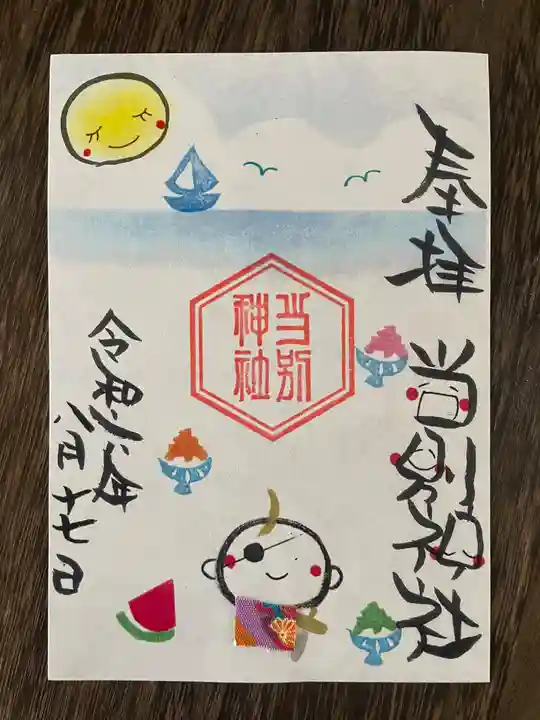 奉拝
当別神社
当別
神社
令和二年
八月十七日